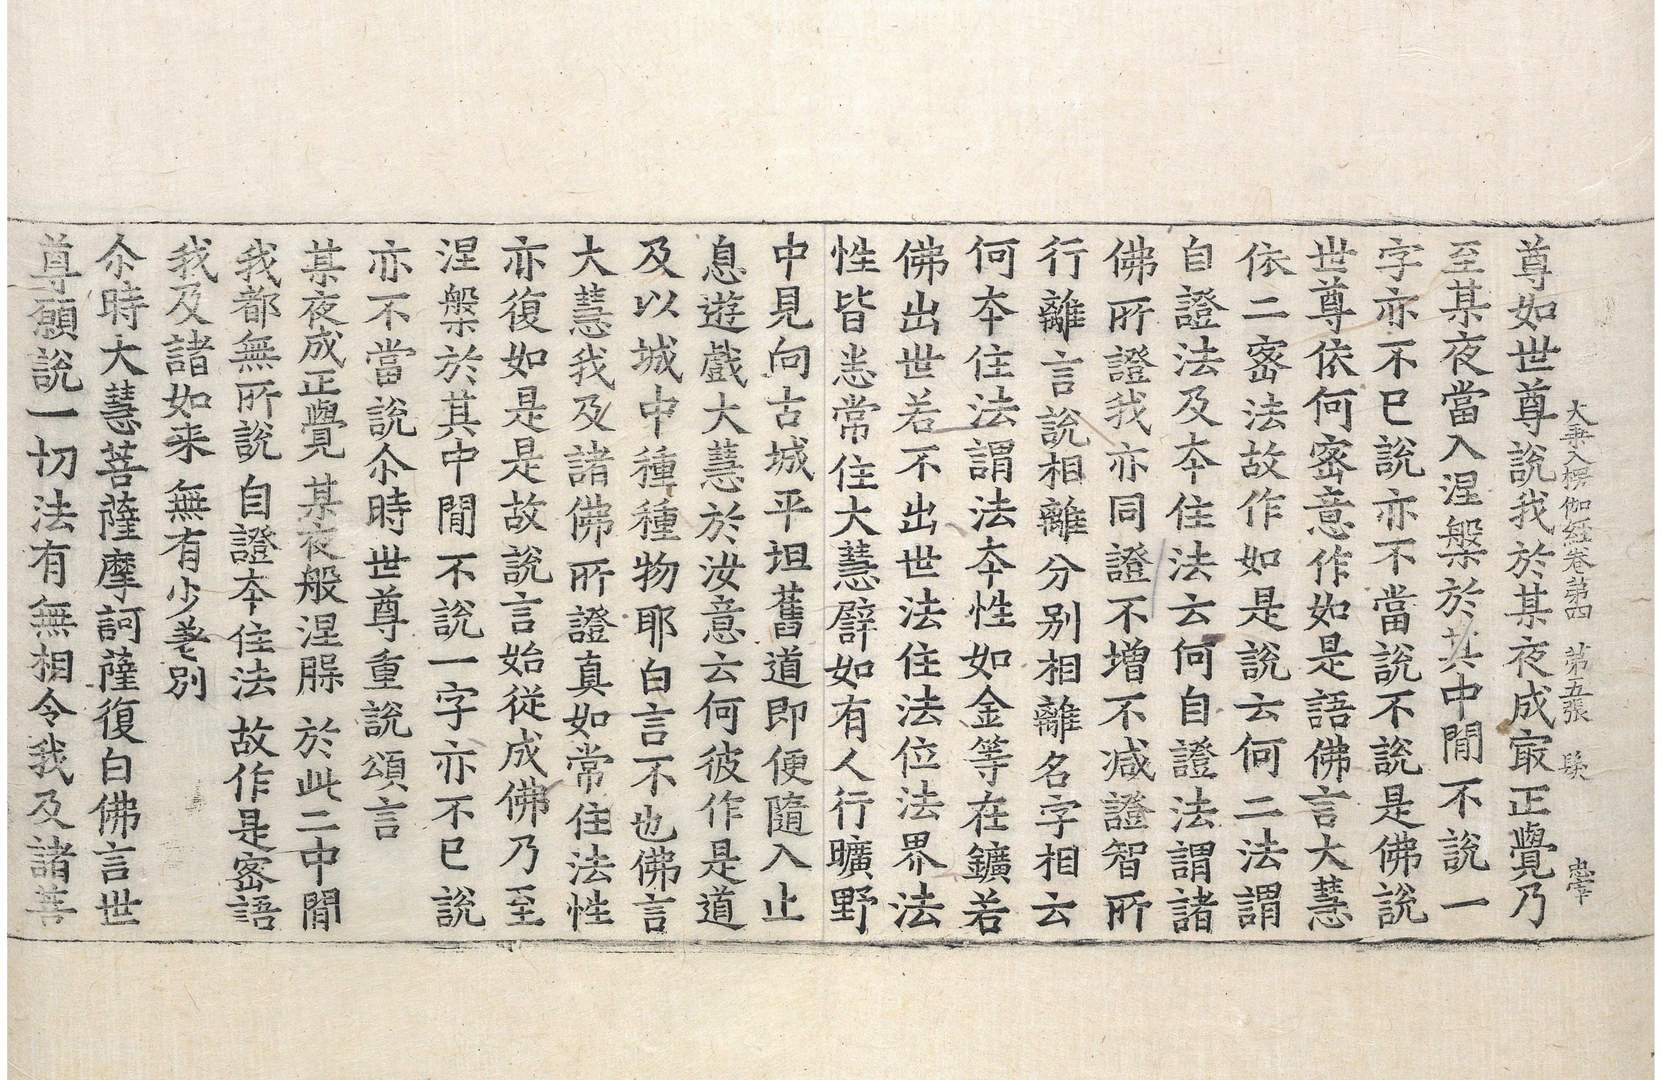 大乗入楞伽経卷第四　第五張　
尊如世尊說我於某夜成㝡正覺乃
至某夜當入涅槃於其中閒不說一
字亦不已說亦不當說不說是佛說
世尊依何密意作如是語佛言大慧
依二密法故作如是說云何二法謂
自證法及夲住法云何自證法謂諸
佛所證我亦同證不增不减證智所
行離言說相離分別相離名字相云
何夲住法謂法夲性如金等在鑛若
佛出世若不出世法住法位法界法
性皆悉常住大慧譬如有人行曠野
中見向古城平坦舊道即便隨入止
息遊戲大慧於汝意云何彼作是道
及以城中種種物耶白言不也佛言
大慧我及諸佛所證真如常住法性
亦復如是是故說言始從成佛乃至
涅槃於其中閒不說一字亦不已說
亦不當說尒時世尊重說頌言
某夜成正覺　某夜般涅槃　於此二中閒
我都無所說　自證夲住法　故作是密語
我及諸如来　無有少差別
尒時大慧菩薩摩訶薩復白佛言世
尊願說一切法有無相令我及諸菩